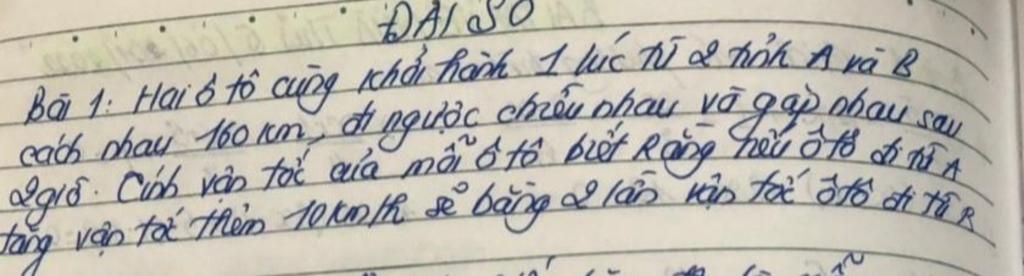 ĐẠI SỐ
Bài 1: Hai ô tô cùng khởi hành 1 lúc từ 2 tỉnh A và B
cách nhau 160 km, đi ngược chiều nhau và gặp nhau sau
2 giờ. Tính vận tốc của mỗi ô tô biết Rằng nếu ô tô đi từ A
tăng vận tốc thêm 10 km/h sẽ bằng 2 lần vận tốc ô tô đi từ B